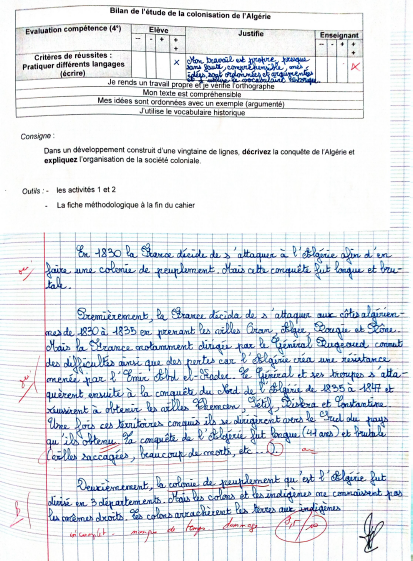 Bilan de l'étude de la colonisation de l'Algérie
Evaluation compétence (4°) Elève Justifie Enseignant
-- - + ++ -- - + ++
Critères de réussites :
Pratiquer différents langages
(écrire)
x Mon travail est propre, presque
sans faute, compréhensible, mes
idées sont ordonnées et argumentées
et j'utilise le vocabulaire historique. x
Je rends un travail propre et je vérifie l'orthographe
Mon texte est compréhensible
Mes idées sont ordonnées avec un exemple (argumenté)
J'utilise le vocabulaire historique
Consigne :
Dans un développement construit d'une vingtaine de lignes, décrivez la conquête de l'Algérie et
expliquez l'organisation de la société coloniale.
Outils : - les activités 1 et 2
- La fiche méthodologique à la fin du cahier
En 1830 la France décide de s'attaquer à l'Algérie afin d'en
faire une colonie de peuplement. Mais cette conquête fut longue et bru-
tale.
Premièrement, la France décida de s'attaquer aux côtes algérien-
nes de 1830 à 1835 en prenant les villes Oran, Alger Bougie et Bône.
Mais la France notamment dirigée par le Général Bugeaud, connut
des difficultés ainsi que des pertes car l'Algérie créa une résistance
menée par l'Emir Abd el-Kader. Le Général et ses troupes s'atta-
quèrent ensuite à la conquête du Nord de l'Algérie de 1835 à 1847 et
réussirent à obtenir les villes Tlemcen, Sétif, Biskra et Constantine.
Une fois ces territoires conquis ils se dirigèrent vers le Sud du pays
qu'ils obtenu. La conquête de l'Algérie fut longue (41 ans) et brutale
(villes saccagées, beaucoup de morts, etc...).
Deuxièmement, la colonie de peuplement qu'est l'Algérie fut
divisé en 3 départements. Mais les colons et les indigènes ne connaissent pas
les mêmes droits. Les colons arrachèrent les terres aux indigènes
incomplet manque de temps dommage